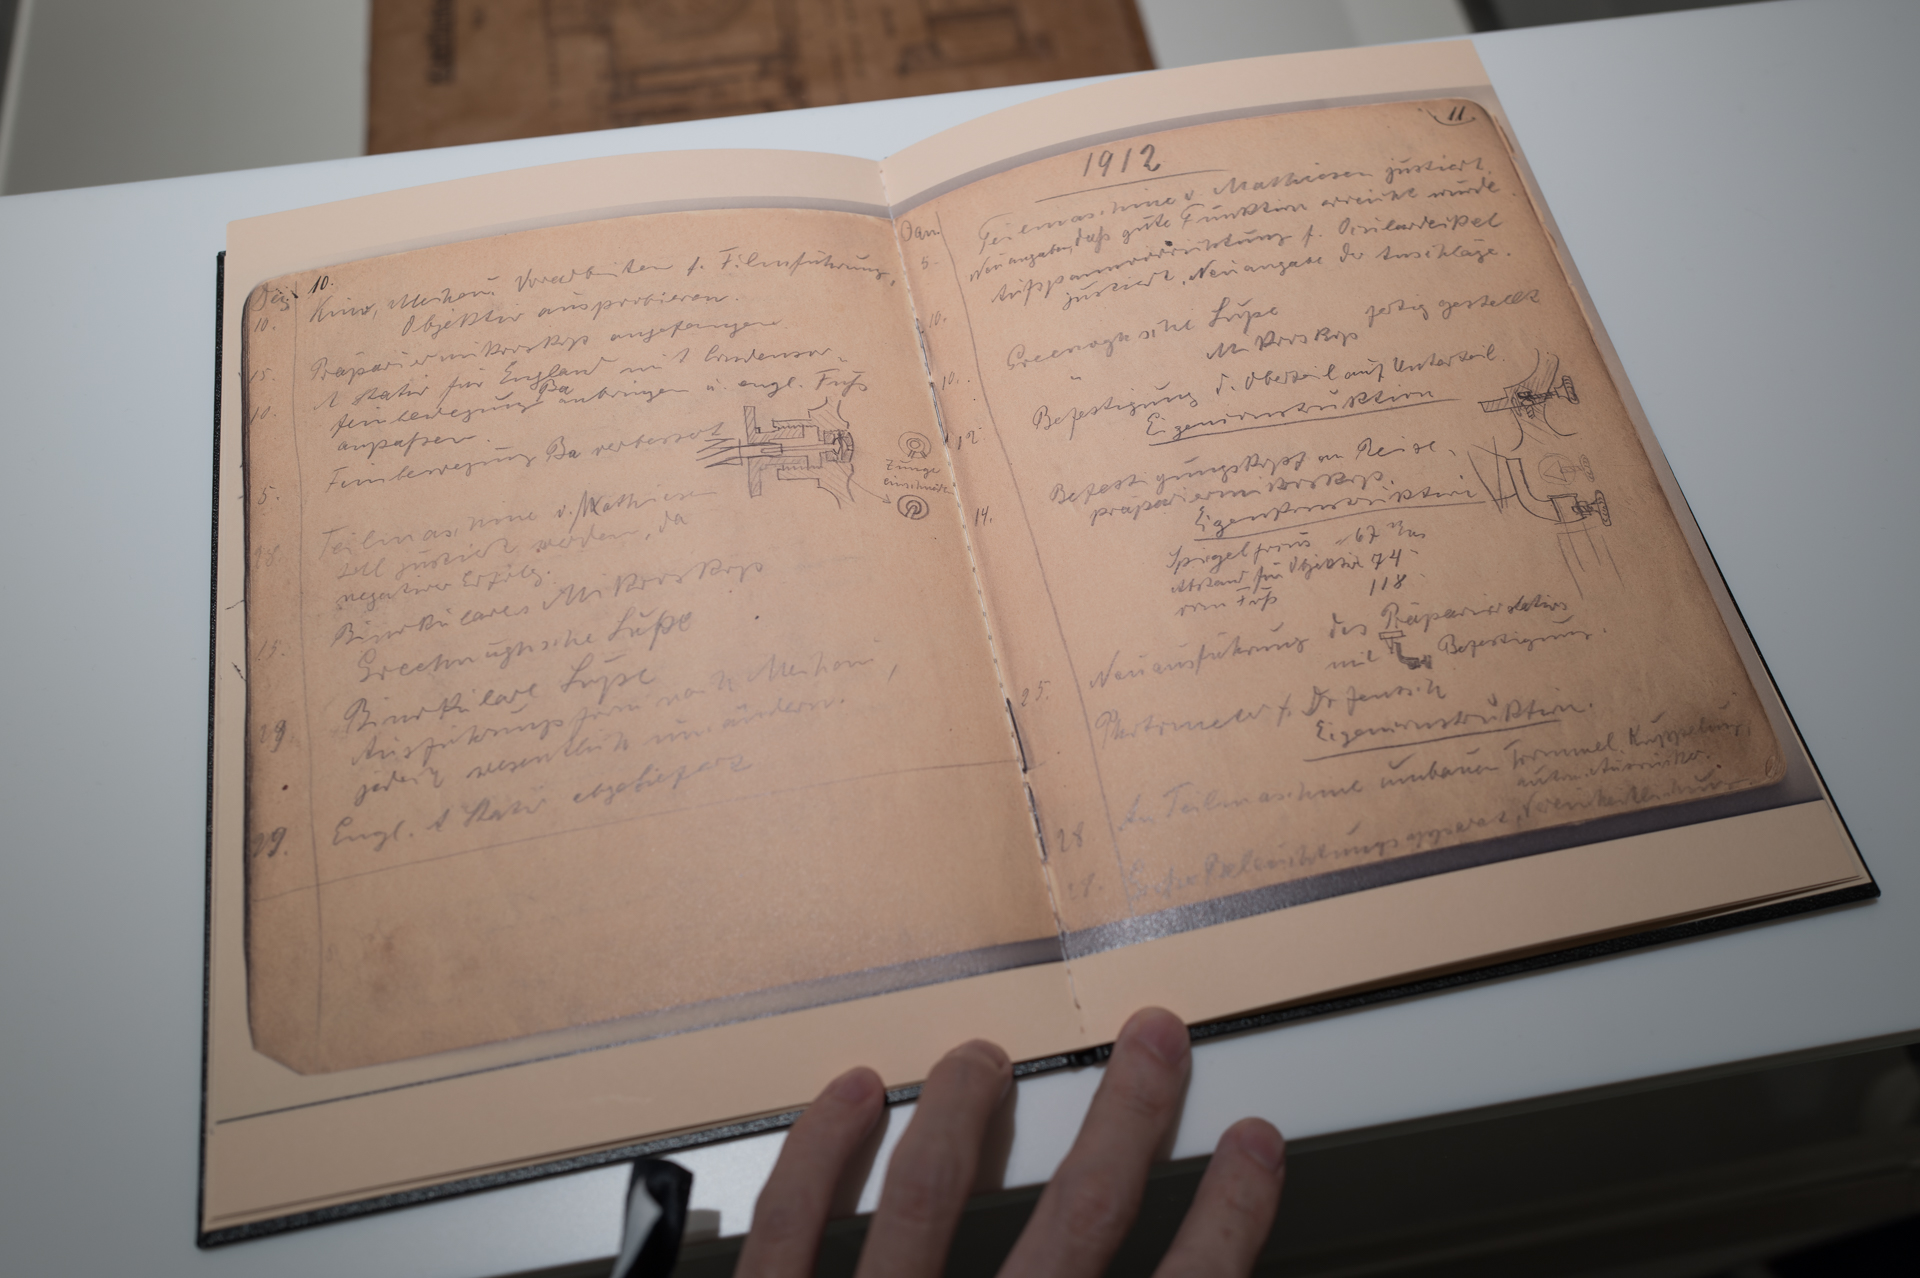 10.
Dez.
Kino, Mechau Vorarbeiten f. Filmführung,
10.
Objektiv ausprobieren.
15.
Präpariermikroskop angefangen
10.
1 Stativ für England mit Condensor
Feinbewegung Ba anbringen u. engl. Fuß
anpaßen.
5.
Feinbewegung Ba verbessert
Zunge
einschneiden
Teilmaschine v. Mathiesen
soll justiert werden, da
negativer Erfolg.
15.
Binokulares Mikroskop
Greenoughsche Lupe
29
Binokulare Lupe
Ausführungsform nach Mechau,
jedoch wesentlich umändern.
29.
Engl. 1 Stativ abgeliefert
11
1912
Jan.
Teilmaschine v. Mathiesen justiert.
5.
Neuangaben, daß gute Funktion erreicht wurde.
Aufspannvorrichtung f.
justiert, Neuangabe der Anschläge.
10.
Greenoughsche Lupe fertig gestellt
" Mikroskop
10.
Befestigung d. Oberteil auf Unterteil.
Eigenkonstruktion
12.
Befestigungsknopf am Reise-
präpariermikroskop.
14.
Eigenkonstruktion
Spiegelfocus 67 mm
Abstand für Objektiv 74
vom Fuß 118
Neuausführung des Präparierstativs
mit Befestigung.
25.
Photometer f. Dr Jentzsch
Eigenkonstruktion.
28
An Teilmaschine umbauen Trommel. Kuppelung,
autom. Ausrücker.
Beleuchtungsapparat, Vereinheitlichung